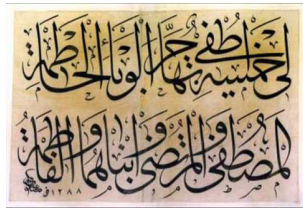 لي خمسة أطفي بها حر الوباء الحاطمة
المصطفى والمرتضى وابناهما والفاطمة
١٢٨٨